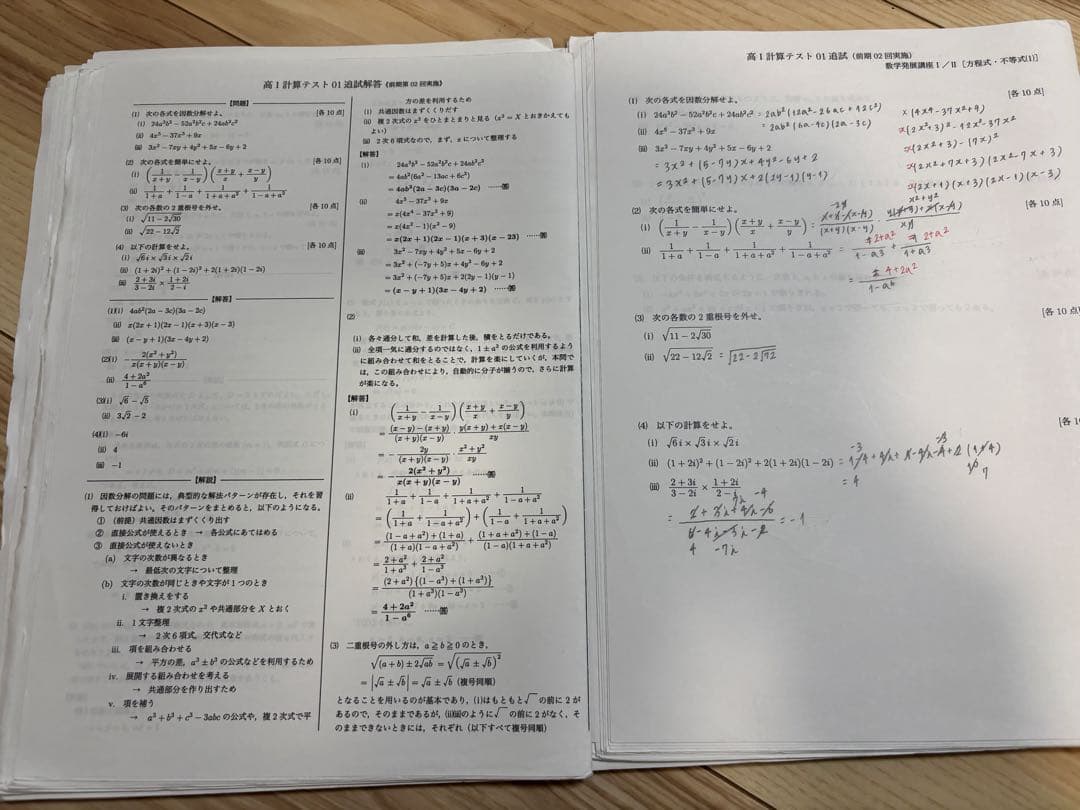 高1計算テスト01追試解答(前期第02回実施)
【問題】
(1) 次の各式を因数分解せよ. [各10点]
(i) 24a³b² − 52a²b²c + 24ab²c²
(ii) 4x⁵ − 37x³ + 9x
(iii) 3x² − 7xy + 4y² + 5x − 6y + 2
(2) 次の各式を簡単にせよ. [各10点]
(i) (1/(x+y) − 1/(x−y))((x+y)/x + (x−y)/y)
(ii) 1/(1+a) + 1/(1−a) + 1/(1+a+a²) + 1/(1−a+a²)
(3) 次の各数の2重根号を外せ. [各10点]
(i) √(11−2√30)
(ii) √(22−12√2)
(4) 以下の計算をせよ. [各10点]
(i) √6i × √3i × √2i
(ii) (1+2i)² + (1−2i)² + 2(1+2i)(1−2i)
(iii) (2+3i)/(3−2i) × (1+2i)/(2−i)
【解答】
(1)(i) 4ab²(2a−3c)(3a−2c)
(ii) x(2x+1)(2x−1)(x+3)(x−3)
(iii) (x−y+1)(3x−4y+2)
(2)(i) −2(x²+y²)/(x(x+y)(x−y))
(ii) (4+2a²)/(1−a⁶)
(3)(i) √6 − √5
(ii) 3√2 − 2
(4)(i) −6i
(ii) 4
(iii) −1
【解説】
(1) 因数分解の問題には,典型的な解法パターンが存在し,それを習
得しておけばよい.そのパターンをまとめると,以下のようになる.
① (前提)共通因数はまずくくり出す
② 直接公式が使えるとき → 各公式にあてはめる
③ 直接公式が使えないとき
(a) 文字の次数が異なるとき
→ 最低次の文字について整理
(b) 文字の次数が同じときや文字が1つのとき
i. 置き換えをする
→ 複2次式のx²やの共通部分をXとおく
ii. 1文字整理
→ 2次6項式,交代式など
iii. 項を組み合わせる
→ 平方の差,a³±b³の公式などを利用するため
iv. 展開する組み合わせを考える
→ 共通部分を作り出すため
v. 項を補う
→ a³+b³+c³−3abcの公式や,複2次式で平
方の差を利用するため
(i) 共通因数はまずくくりだす
(ii) 複2次式のx²をひとまとまりと見る(x²=Xとおきかえても
よい)
(iii) 2次6項式なので,まず,xについて整理する
【解答】
(i) 24a³b² − 52a²b²c + 24ab²c²
= 4ab²(6a² − 13ac + 6c²)
= 4ab²(2a−3c)(3a−2c) ……答
(ii) 4x⁵ − 37x³ + 9x
= x(4x⁴ − 37x² + 9)
= x(4x²−1)(x²−9)
= x(2x+1)(2x−1)(x+3)(x−23) ……答
(iii) 3x² − 7xy + 4y² + 5x − 6y + 2
= 3x² + (−7y+5)x + 4y² − 6y + 2
= 3x² + (−7y+5)x + 2(2y−1)(y−1)
= (x−y+1)(3x−4y+2) ……答
(2)
(i) 各々通分して和,差を計算した後,積をとるだけである.
(ii) 全項一気に通分するのではなく,1±a³の公式を利用するよう
に組み合わせて和をとることで,計算を楽にしていくが,本問で
は,この組み合わせにより,自動的に分子が揃うので,さらに計算
が楽になる.
【解答】
(i) (1/(x+y) − 1/(x−y))((x+y)/x + (x−y)/y)
= ((x−y)−(x+y))/((x+y)(x−y)) · (y(x+y)+x(x−y))/(xy)
= −2y/((x+y)(x−y)) · (x²+y²)/(xy)
= −2(x²+y²)/(x(x+y)(x−y)) ……答
(ii) 1/(1+a) + 1/(1−a) + 1/(1+a+a²) + 1/(1−a+a²)
= (1/(1+a) + 1/(1−a+a²)) + (1/(1−a) + 1/(1+a+a²))
= ((1−a+a²)+(1+a))/((1+a)(1−a+a²)) + ((1+a+a²)+(1−a))/((1−a)(1+a+a²))
= (2+a²)/(1+a³) + (2+a²)/(1−a³)
= (2+a²){(1−a³)+(1+a³)}/((1+a³)(1−a³))
= (4+2a²)/(1−a⁶) ……答
(3) 二重根号の外し方は,a≧b≧0のとき,
√((a+b)±2√ab) = √((√a±√b)²)
= |√a±√b| = √a±√b (複号同順)
となることを用いるのが基本であり,(i)はもともと√の前に2が
あるので,そのままであるが,(ii)(iii)のように√の前に2がなく,そ
のままできないときには,それぞれ(以下すべて複号同順)
高1計算テスト01追試(前期02回実施)
数学発展講座I/II [方程式・不等式(1)]
(1) 次の各式を因数分解せよ. [各10点]
(i) 24a³b² − 52a²b²c + 24ab²c² = 2ab²(12a²−26ac+12c²)
= 2ab²(6a−4c)(2a−3c)
(ii) 4x⁵ − 37x³ + 9x
x(4x⁴−37x²+9)
x(2x²+3)²−12x²−37x²
x(2x²+3)−(7x)²
x(2x²+7x+3)(2x²−7x+3)
x(2x+1)(x+3)(2x−1)(x−3)
(iii) 3x² − 7xy + 4y² + 5x − 6y + 2
= 3x²+(5−7y)x+4y²−6y+2
= 3x²+(5−7y)x+2(2y−1)(y−1)
(2) 次の各式を簡単にせよ. [各10点]
(i) (1/(x+y) − 1/(x−y))((x+y)/x + (x−y)/y)
x²+y²
(ii) 1/(1+a) + 1/(1−a) + 1/(1+a+a²) + 1/(1−a+a²) = 2+a²/1−a3 + 2+a²/1+a3
= 4+2a²/1−a6
(3) 次の各数の2重根号を外せ. [各10点]
(i) √(11−2√30)
(ii) √(22−12√2) = √(22−2√72)
(4) 以下の計算をせよ. [各1
(i) √6i × √3i × √2i
(ii) (1+2i)² + (1−2i)² + 2(1+2i)(1−2i)
= 4
(iii) (2+3i)/(3−2i) × (1+2i)/(2−i)
= −1